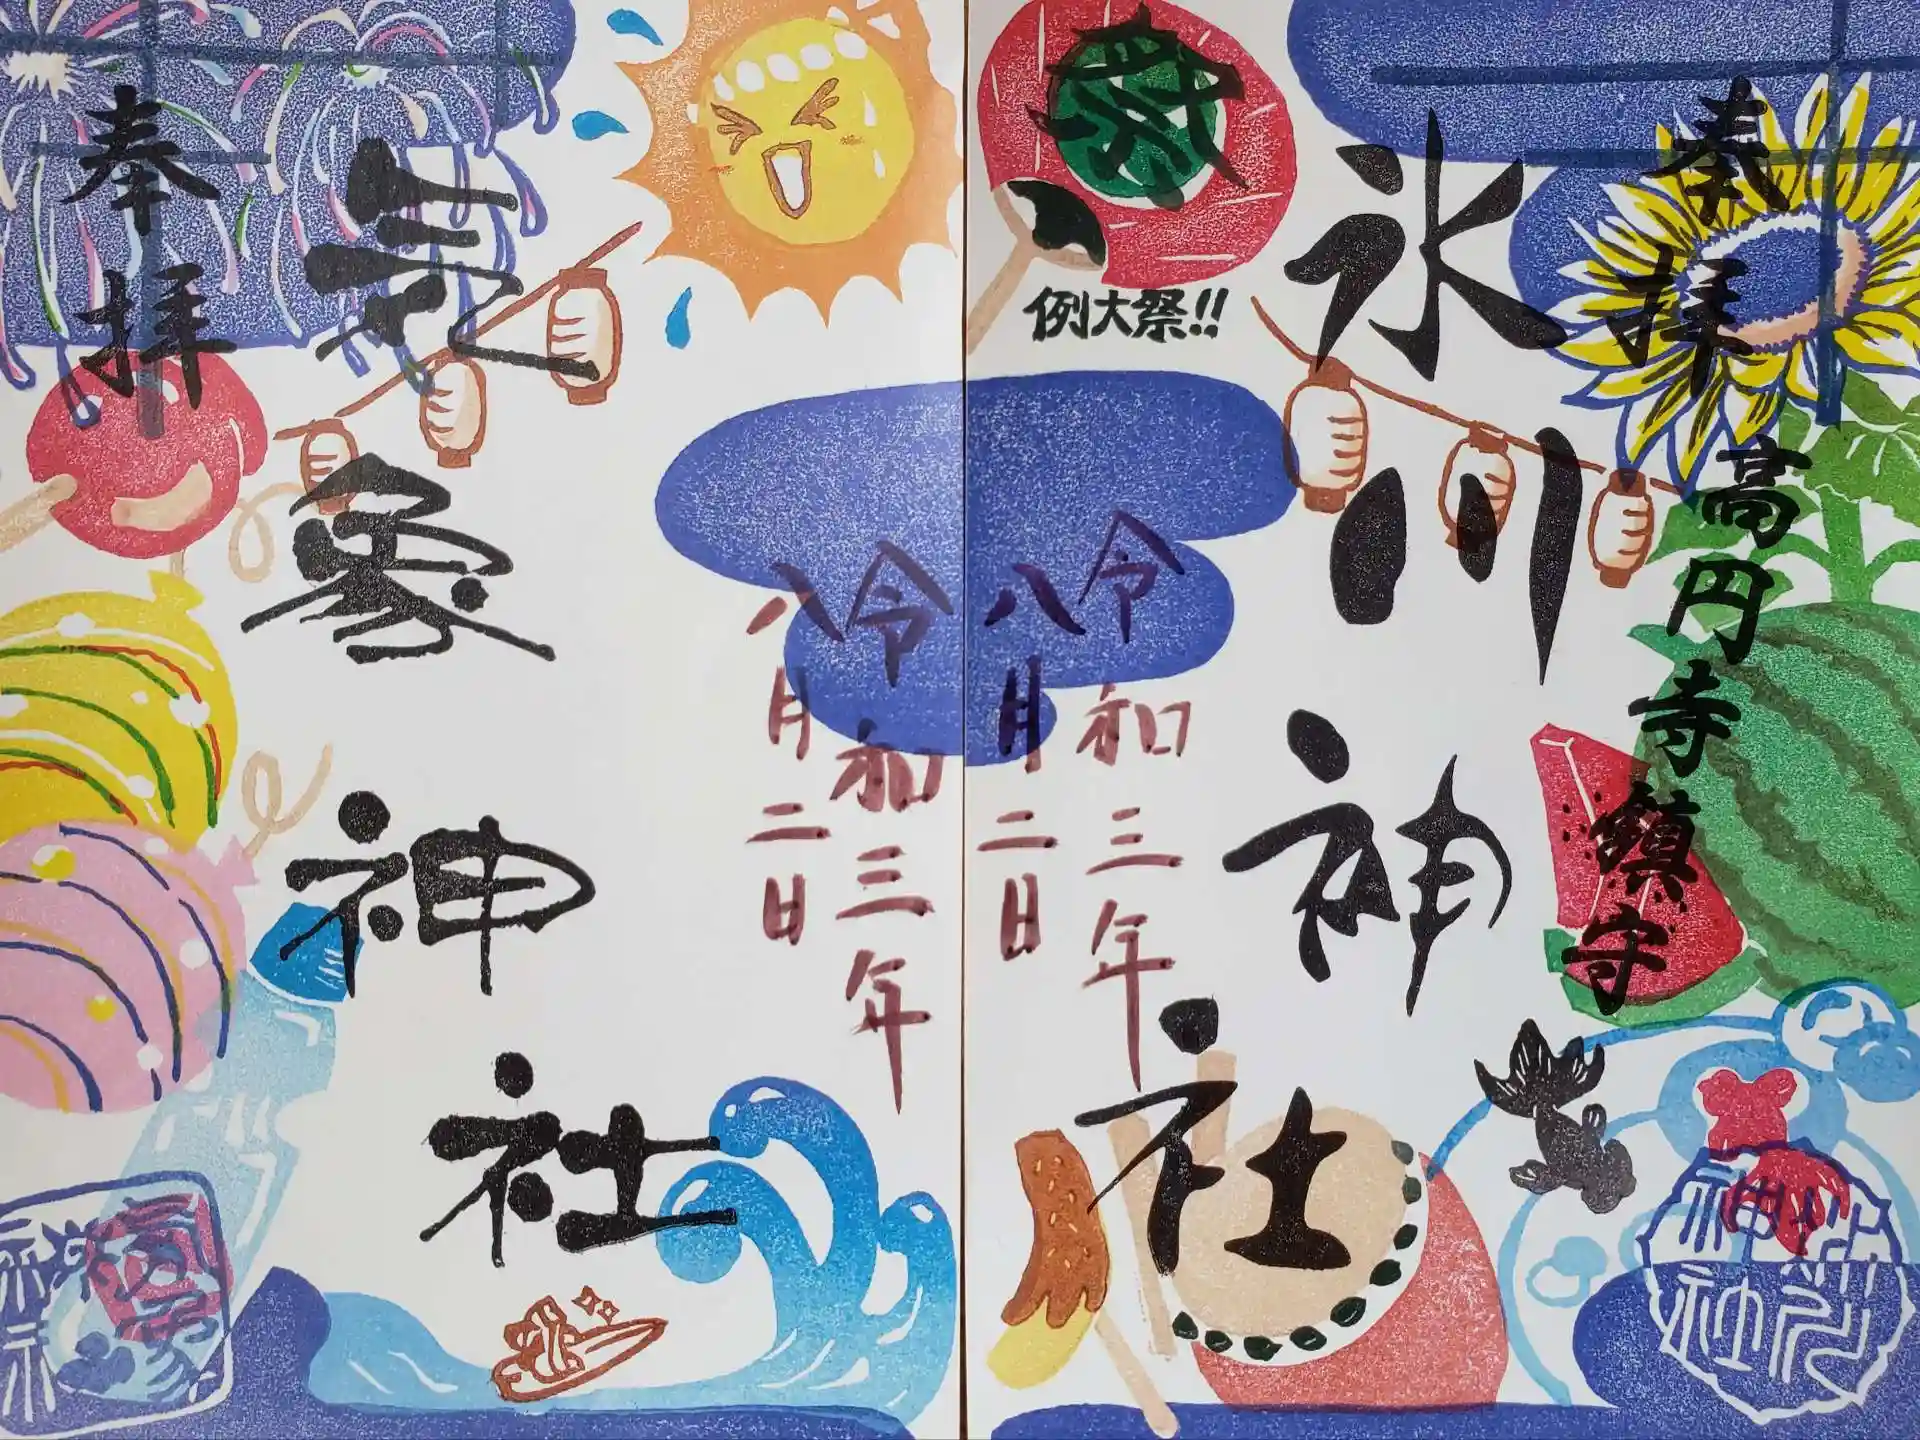 奉拝
高円寺鎮守
氷川神社
祭
例大祭!!
令和三年
八月二日
奉拝
気象神社
令和三年
八月二日